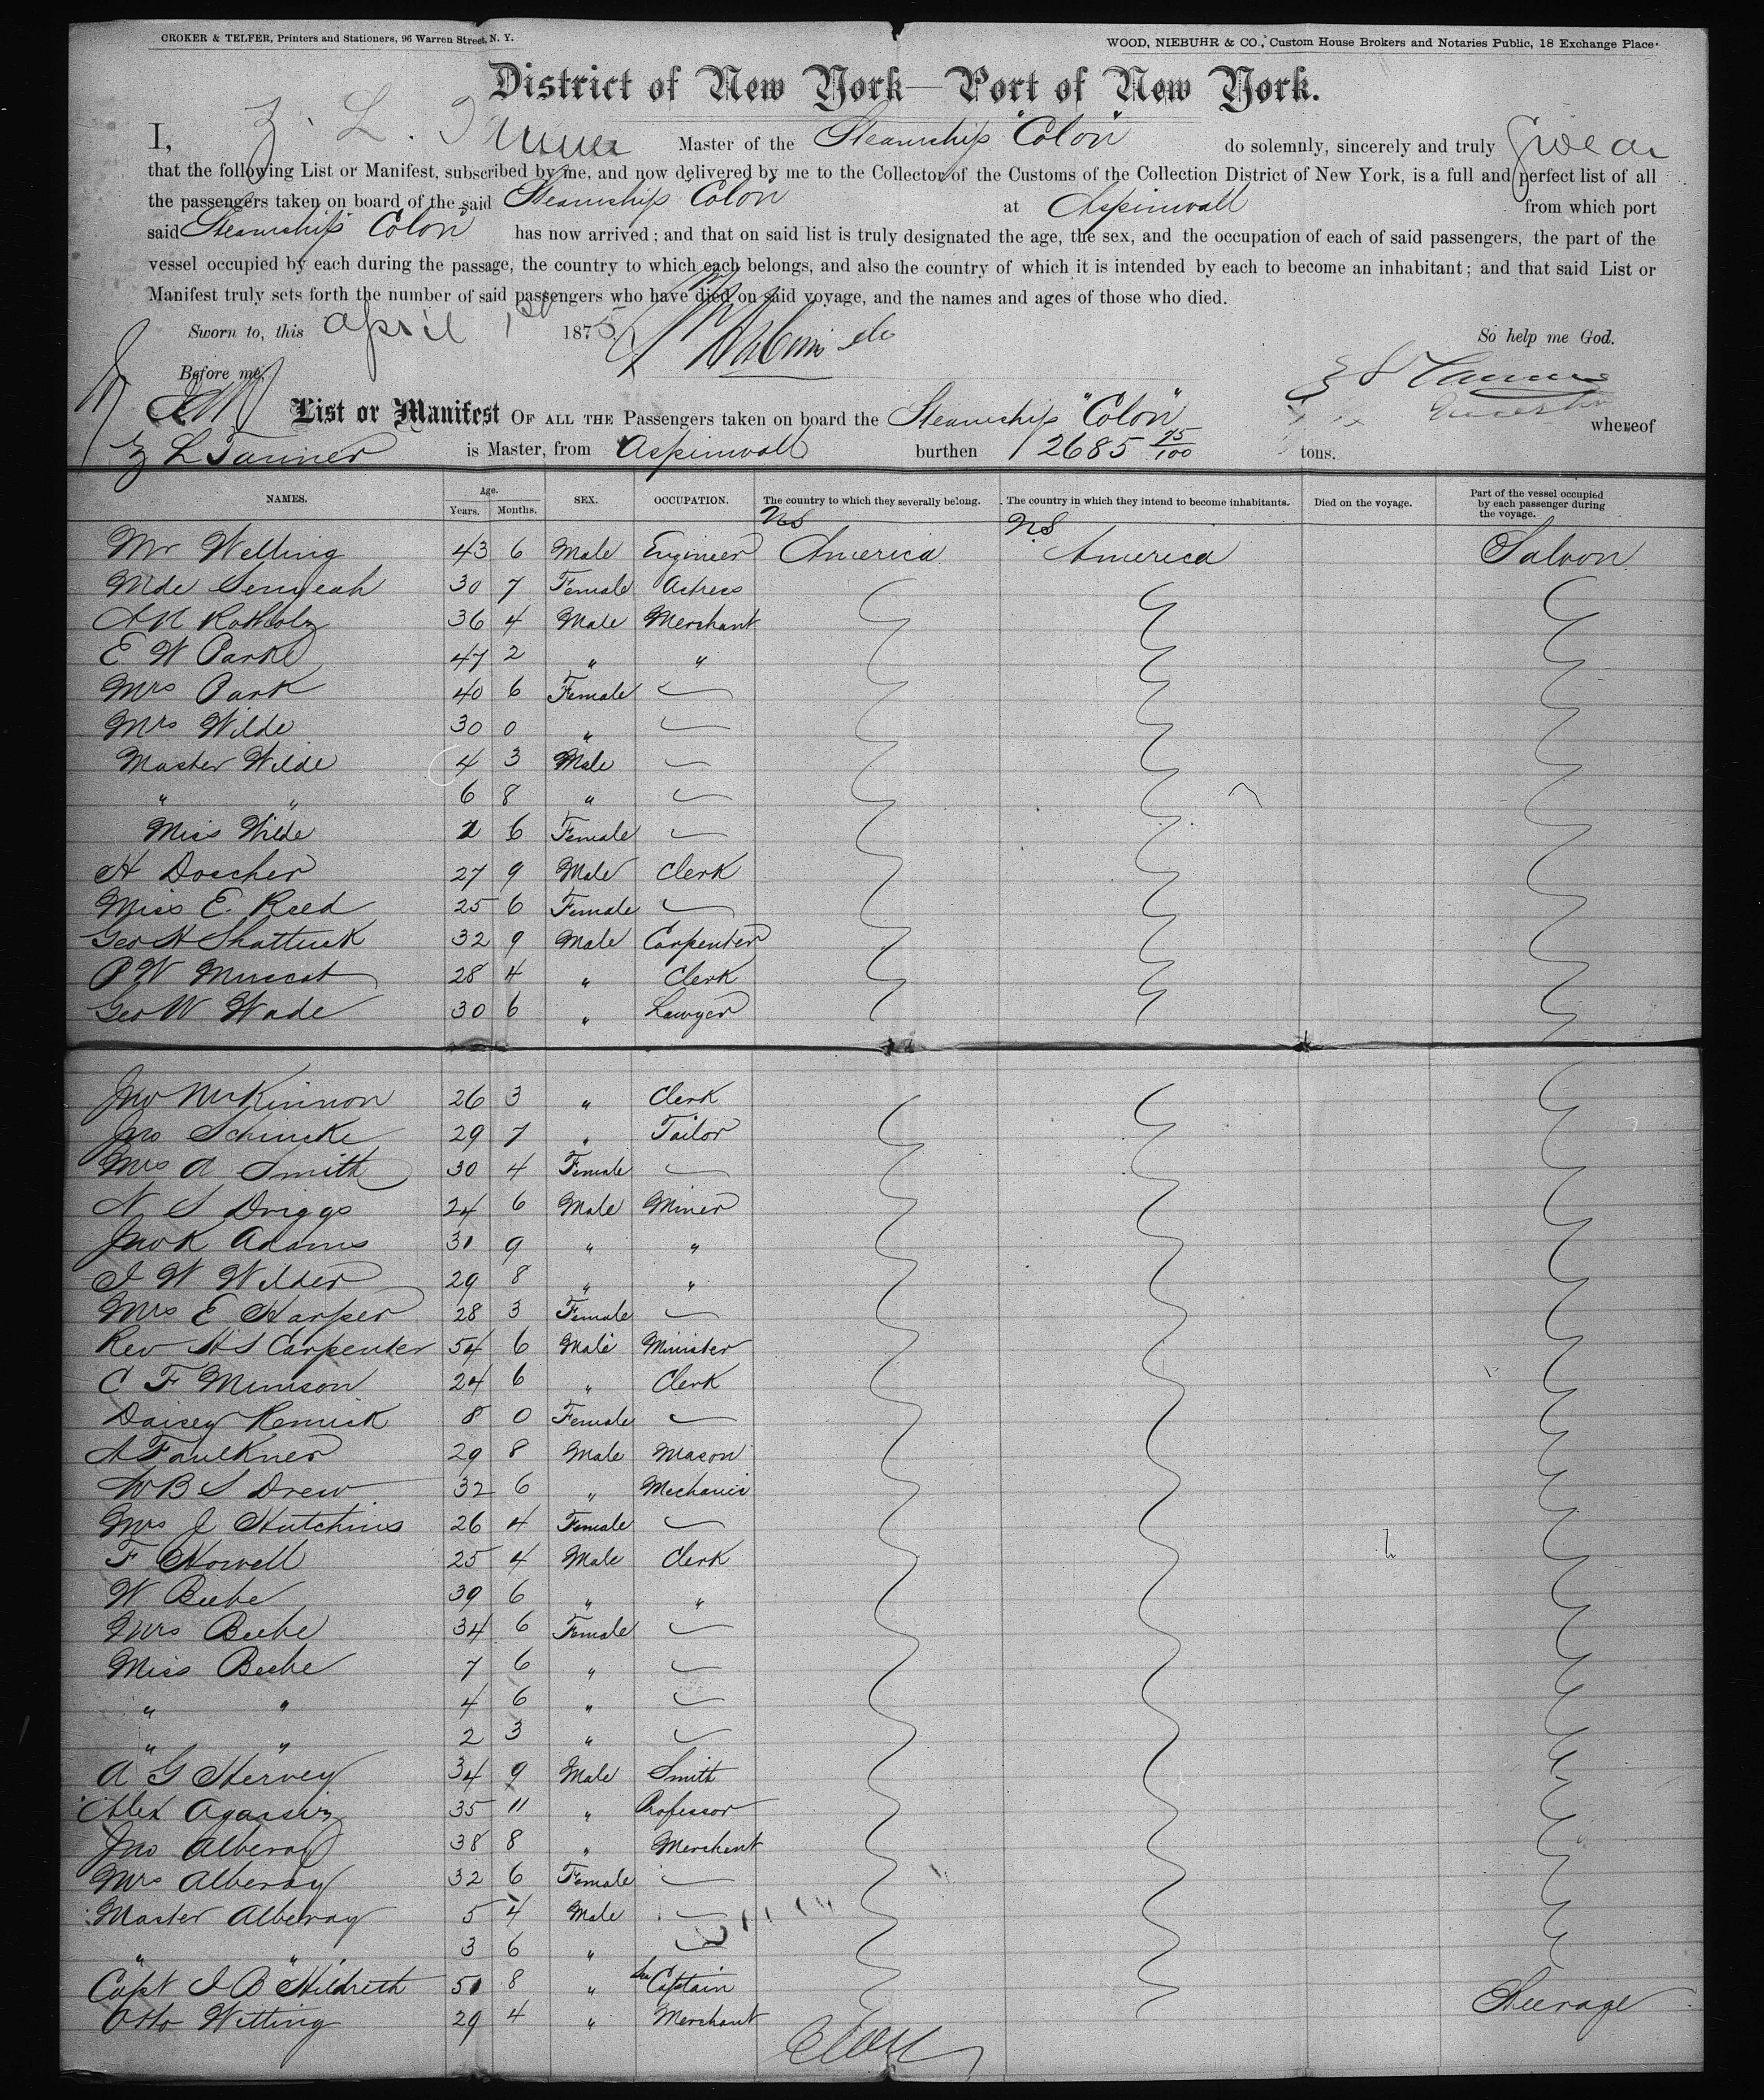 CROKER & TELFER, Printers and Stationers, 96 Warren Street, N. Y.
WOOD, NIEBUHR & CO., Custom House Brokers and Notaries Public, 18 Exchange Place.
District of New York—Port of New York.
I, Z. L. Tanner Master of the Steamship "Colon" do solemnly, sincerely and truly Swear
that the following List or Manifest, subscribed by me, and now delivered by me to the Collector of the Customs of the Collection District of New York, is a full and perfect list of all
the passengers taken on board of the said Steamship Colon at Aspinwall from which port
said Steamship Colon has now arrived; and that on said list is truly designated the age, the sex, and the occupation of each of said passengers, the part of the
vessel occupied by each during the passage, the country to which each belongs, and also the country of which it is intended by each to become an inhabitant; and that said List or
Manifest truly sets forth the number of said passengers who have died on said voyage, and the names and ages of those who died.
Sworn to, this April 1st 1875 So help me God.
Before me,
List or Manifest OF ALL THE Passengers taken on board the Steamship "Colon" whereof
Z L Tanner is Master, from Aspinwall burthen 2685 75/100 tons.
NAMES. Age. Years. Months. SEX. OCCUPATION. The country to which they severally belong. The country in which they intend to become inhabitants. Died on the voyage. Part of the vessel occupied by each passenger during the voyage.
Mr Welling 43 6 Male Engineer America America Saloon
Mde 30 7 Female Actress
36 4 Male Merchant
E. W Parke 47 2 " "
Mrs Park 40 6 Female
Mrs Wilde 30 0 "
Master Wilde 4 3 Male
" " 6 8 "
Miss Wilde 2 6 Female
H Doscher 27 9 Male Clerk
Miss E. Reed 25 6 Female
Geo H Shattuck 32 9 Male Carpenter
P W 28 4 " Clerk
Geo W Wade 30 6 " Lawyer
Jno McKinnon 26 3 " Clerk
Jno Schucke 29 7 " Tailor
Mrs A Smith 30 4 Female
N S Driggs 24 6 Male Miner
Jno K Adams 31 9 " "
I W Wilder 29 8 " "
Mrs E Harper 28 3 Female
Rev H S Carpenter 54 6 Male Minister
C F 24 6 " Clerk
Daisey Remick 8 0 Female
A Faulkner 29 8 Male Mason
W B S Drew 32 6 " Mechanic
Mrs J Hutchins 26 4 Female
F Howell 25 4 Male Clerk
W Beebe 39 6 " "
Mrs Beebe 34 6 Female
Miss Beebe 7 6 "
" " 4 6 "
" " 2 3 "
A G Hervey 34 9 Male Smith
Alex Agassiz 35 11 " Professor
Jno Alberay 38 8 " Merchant
Mrs Alberay 32 6 Female
Master Alberay 5 4 Male
" " 3 6 "
Capt I B Hildreth 51 8 " Captain Steerage
Otto Witting 29 4 " Merchant